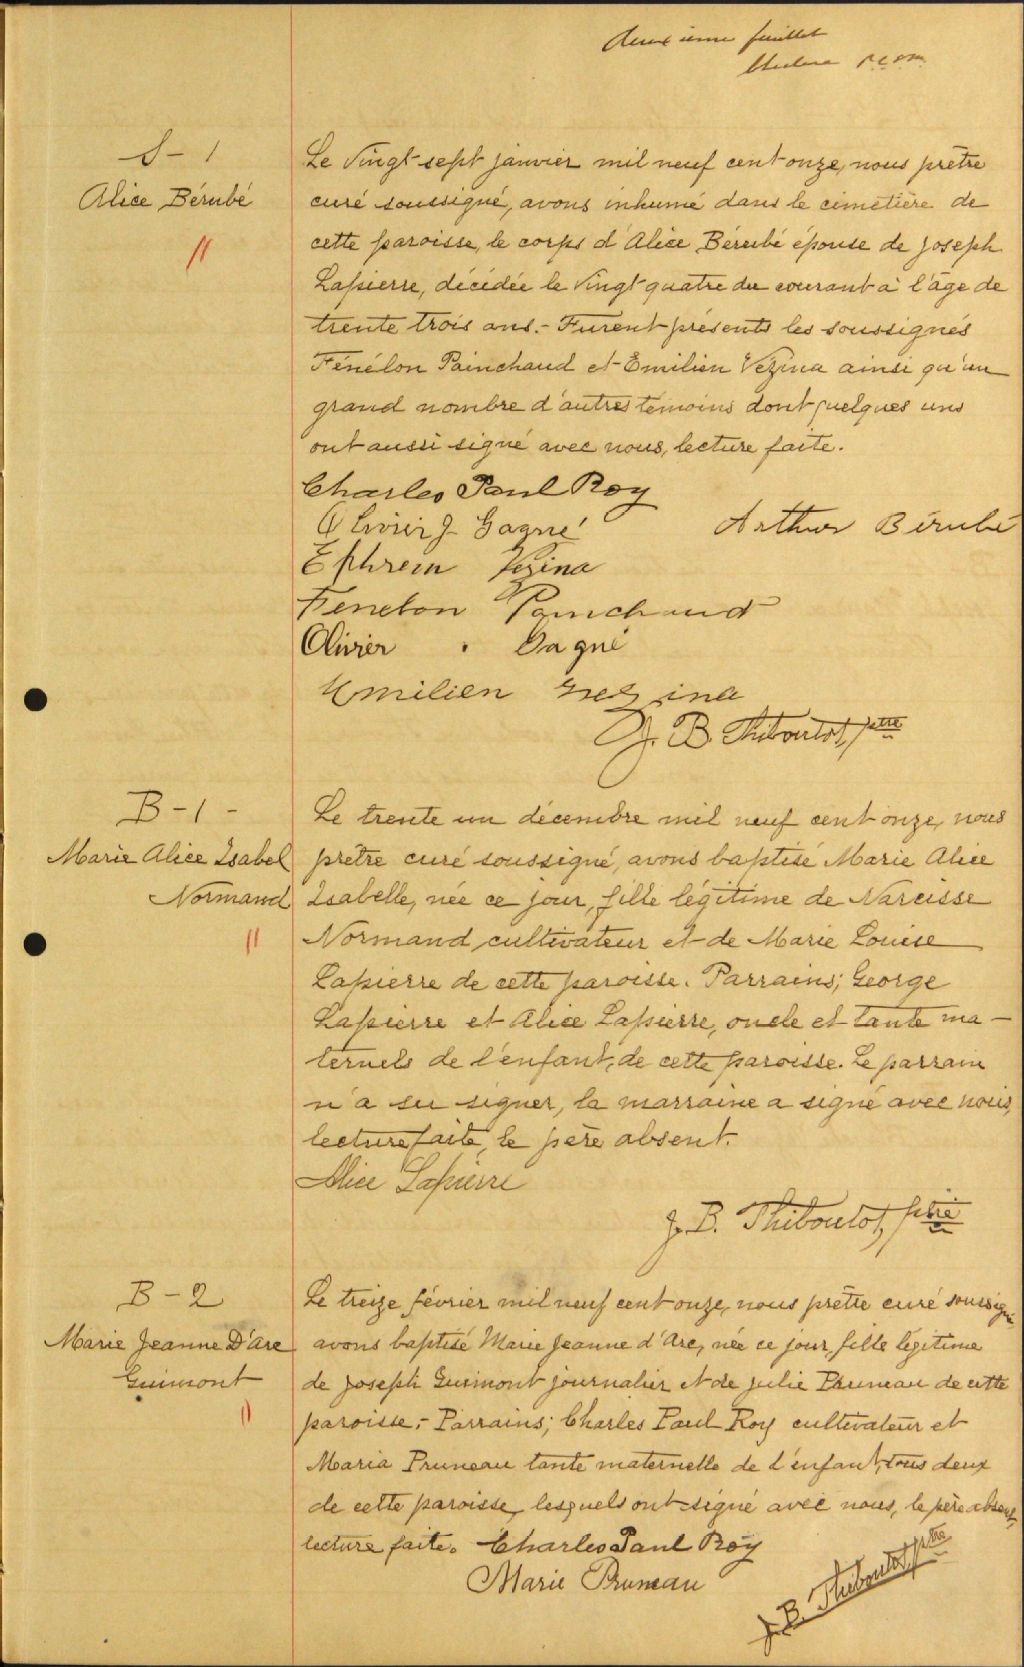 deuxième feuillet
S - 1
Alice Bérubé
Le vingt-sept janvier mil neuf cent onze, nous prêtre
curé soussigné, avons inhumé dans le cimetière de
cette paroisse, le corps d'Alice Bérubé épouse de Joseph
Lapierre, décédée le vingt-quatre du courant à l'âge de
trente trois ans.- Furent présents les soussignés
Fénélon Painchaud et Emilien Vezina ainsi qu'un
grand nombre d'autres témoins dont quelques uns
ont aussi signé avec nous, lecture faite.
Charles Paul Roy
Olivier J. Gagné Arthur Bérubé
Ephrem Vezina
Fenelon Painchaud
Olivier . Gagné
Emilien Vezina
J. B. Thiboutot, ptre
B - 1 -
Marie Alice Isabel
Normand
Le trente un décembre mil neuf cent onze, nous
prêtre curé soussigné, avons baptisé Marie Alice
Isabelle, née ce jour, fille légitime de Narcisse
Normand, cultivateur et de Marie Louise
Lapierre de cette paroisse. Parrains; George
Lapierre et Alice Lapierre, oncle et tante ma-
ternels de l'enfant, de cette paroisse. Le parrain
n'a su signer, la marraine a signé avec nous,
lecture faite, le père absent.
Alice Lapierre
J. B. Thiboutot, ptre
B - 2
Marie Jeanne D'Arc
Guimont
Le treize février mil neuf cent onze, nous prêtre curé soussigné
avons baptisé Marie Jeanne d'Arc, née ce jour, fille légitime
de Joseph Guimont journalier et de Julie Pruneau de cette
paroisse.- Parrains; Charles Paul Roy cultivateur et
Maria Pruneau tante maternelle de l'enfant, tous deux
de cette paroisse, lesquels ont signé avec nous, le père absent,
lecture faite. Charles Paul Roy
Marie Pruneau
J. B. Thiboutot, ptre